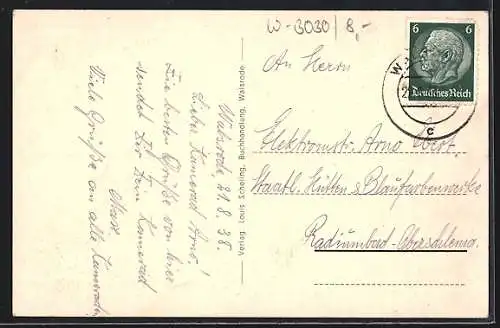 W-3030/8,-
Walsrode 21.8.38.
Lieber Kamerad Arno!
Die besten Grüße von hier
sendet Dir Dein Kamerad
Max
Viele Grüße an alle Kameraden
Verlag Louis Scheling, Buchhandlung, Walsrode
An Herrn
Elektromstr. Arno
Staatl. Hütten & Blaufarbenwerke
Radiumbad-Oberschlema.
6 6
Deutsches Reich
W
c